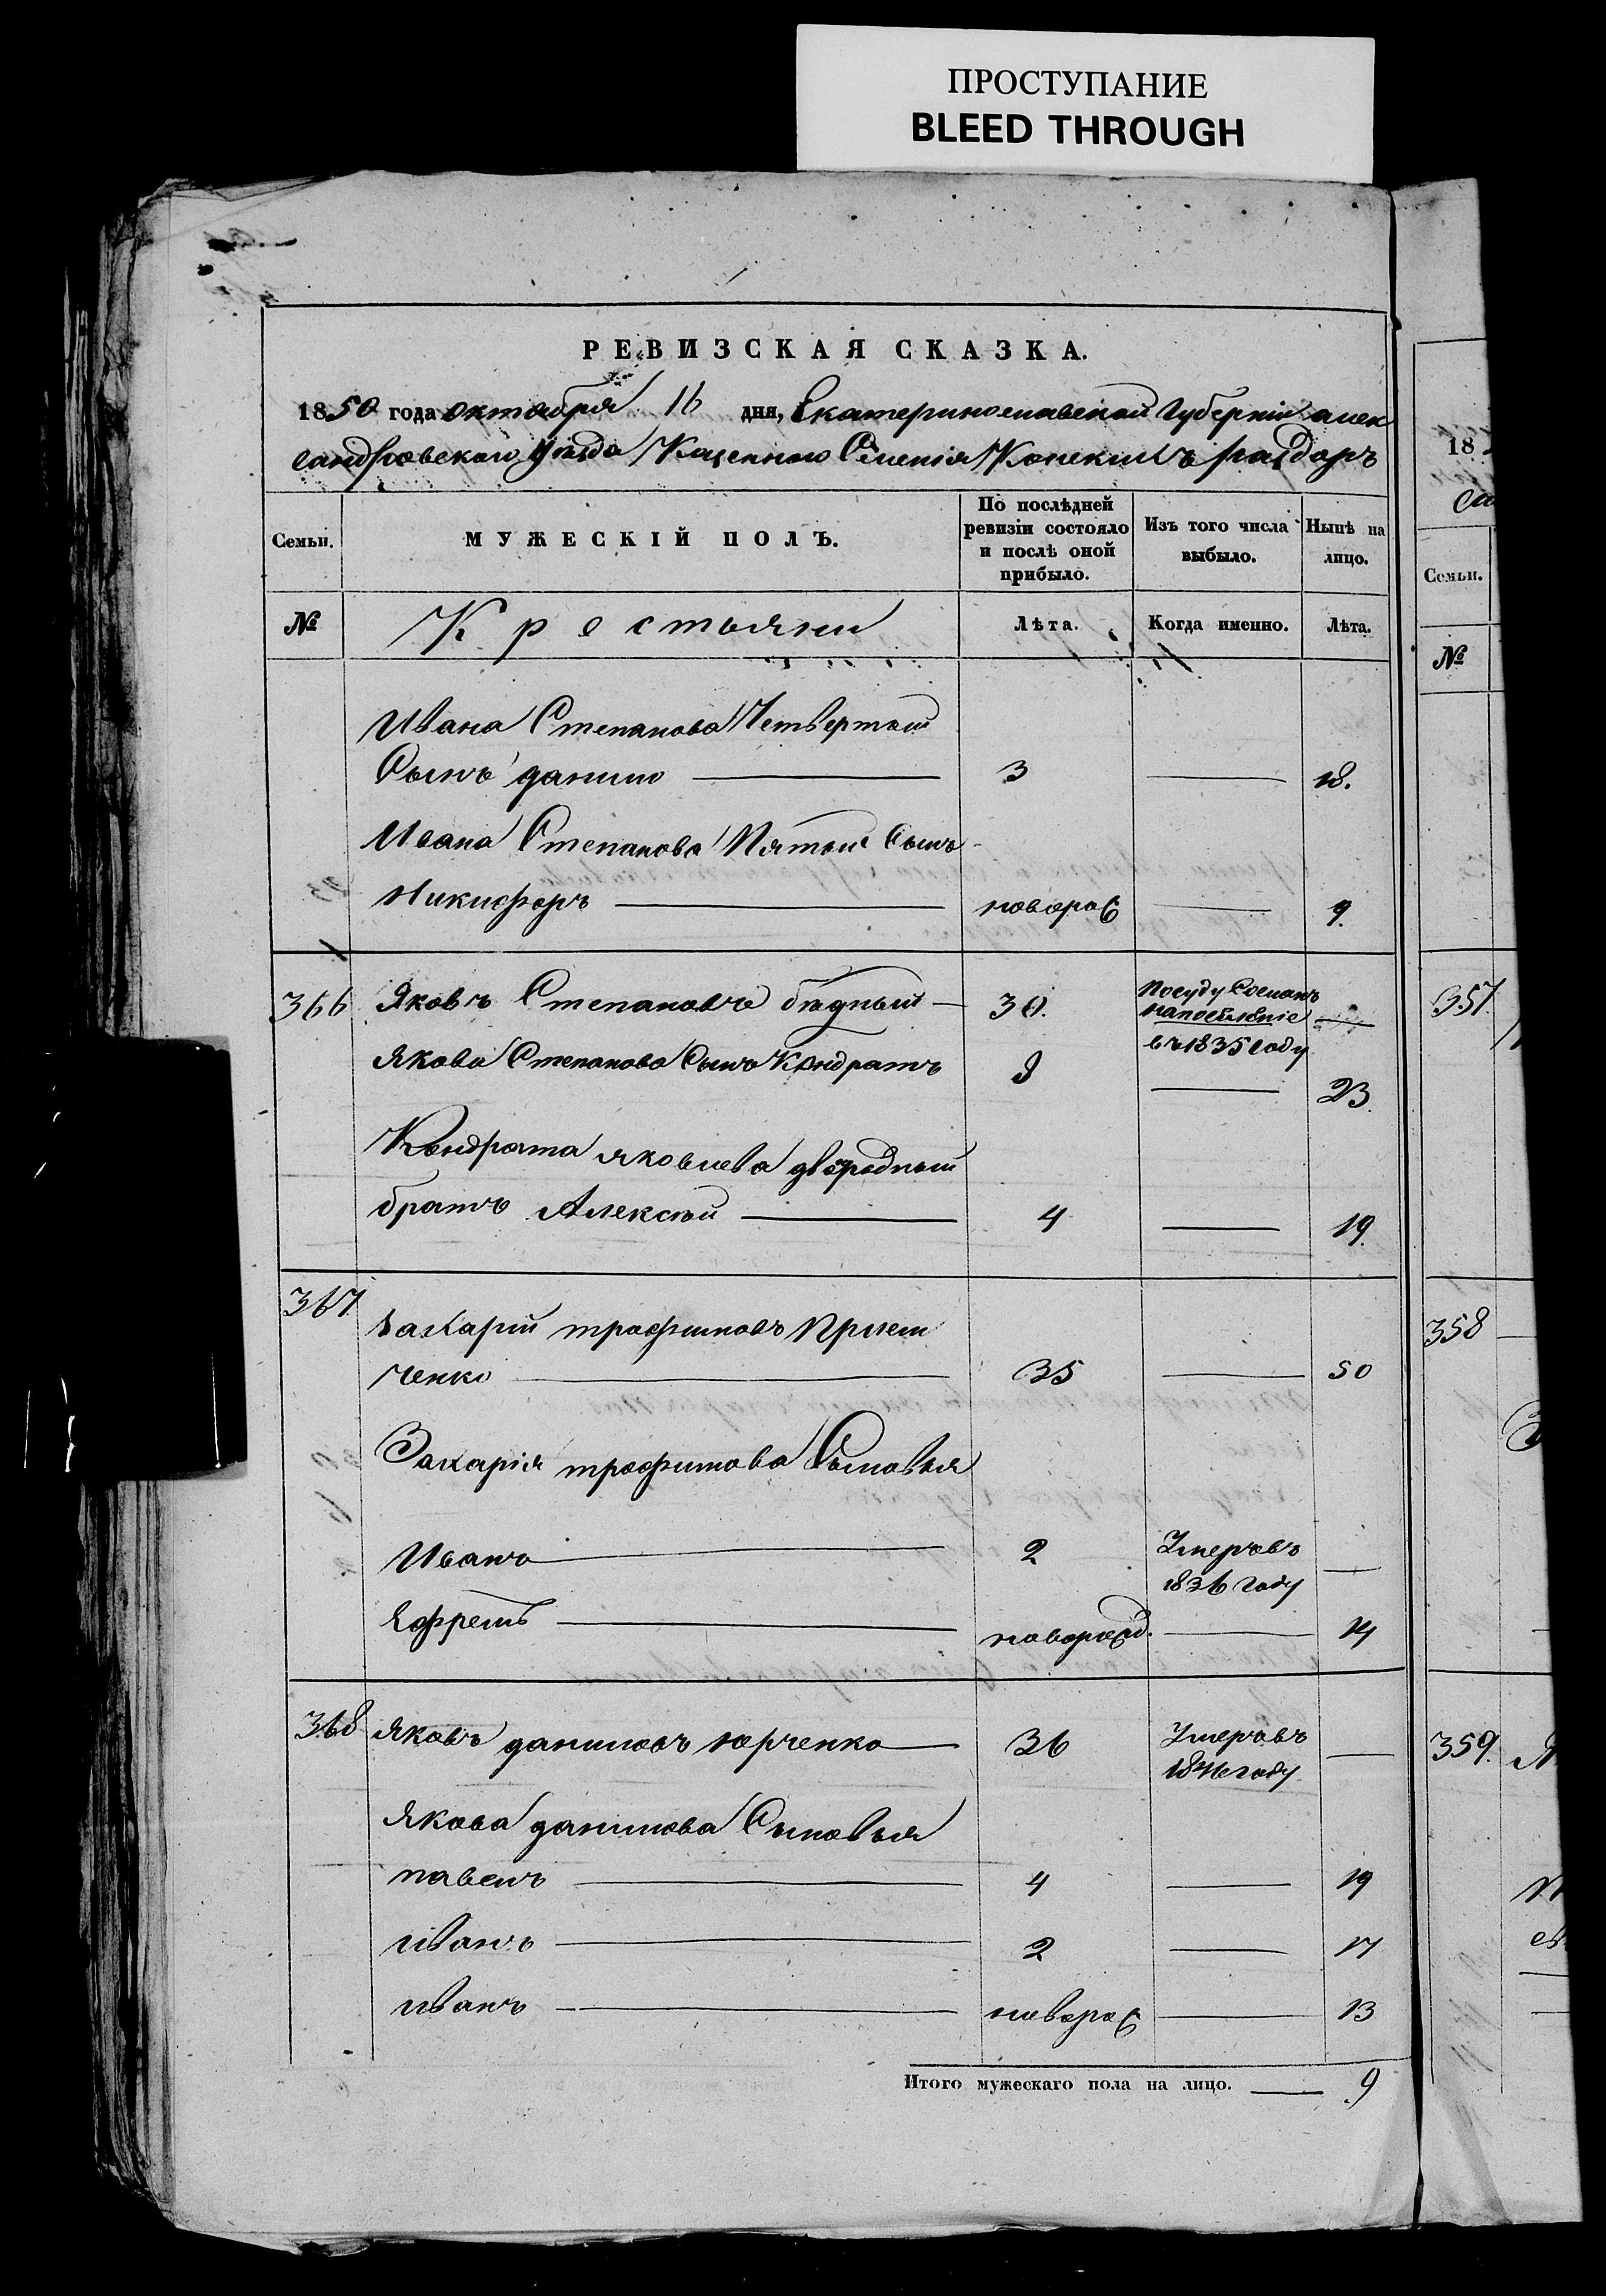 ПРОСТУПАНИЕ
BLEED THROUGH
РЕВИЗСКАЯ СКАЗКА.
1850 года октября 16 дня, Екатеринославской Губернiи алек
сандровского Уѣзда Казенного Селенiя Конскихъ раздоръ
Семьи.
МУЖЕСКІЙ ПОЛЪ.
По послѣдней ревизіи состояло и послѣ оной прибыло.
Изъ того числа выбыло.
Нынѣ на лицо.
№ Крестьяни Лѣта. Когда именно. Лѣта.
Ивана Степанова Четвертый
Сынъ данило 3 18.
Ивана Степанова Пятый Сынъ
Никифоръ новорож 9.
366 Яковъ Степановъ бѣдный 30. Посуду Сосланъ
напоселѣніе
въ 1835 Году
Якова Степанова Сынъ Кондратъ 8 23.
Кондрата яковлева двородный
братъ Алексѣй 4 19.
367.
Захарiй трофимовъ
ченко 35 50
Захарія трофимова Сыновья
Иванъ 2 Умеръ въ
1836 Году
Ефремъ néворожд. 14
368 Яковъ даниловъ юрченко 36 Умеръ въ
1846 году
Якова данилова Сыновья
павелъ 4 19
иванъ 2 17
иванъ новорож 13
Итого мужескаго пола на лицо. 9
18
са
Семьи.
№
357.
358
359.